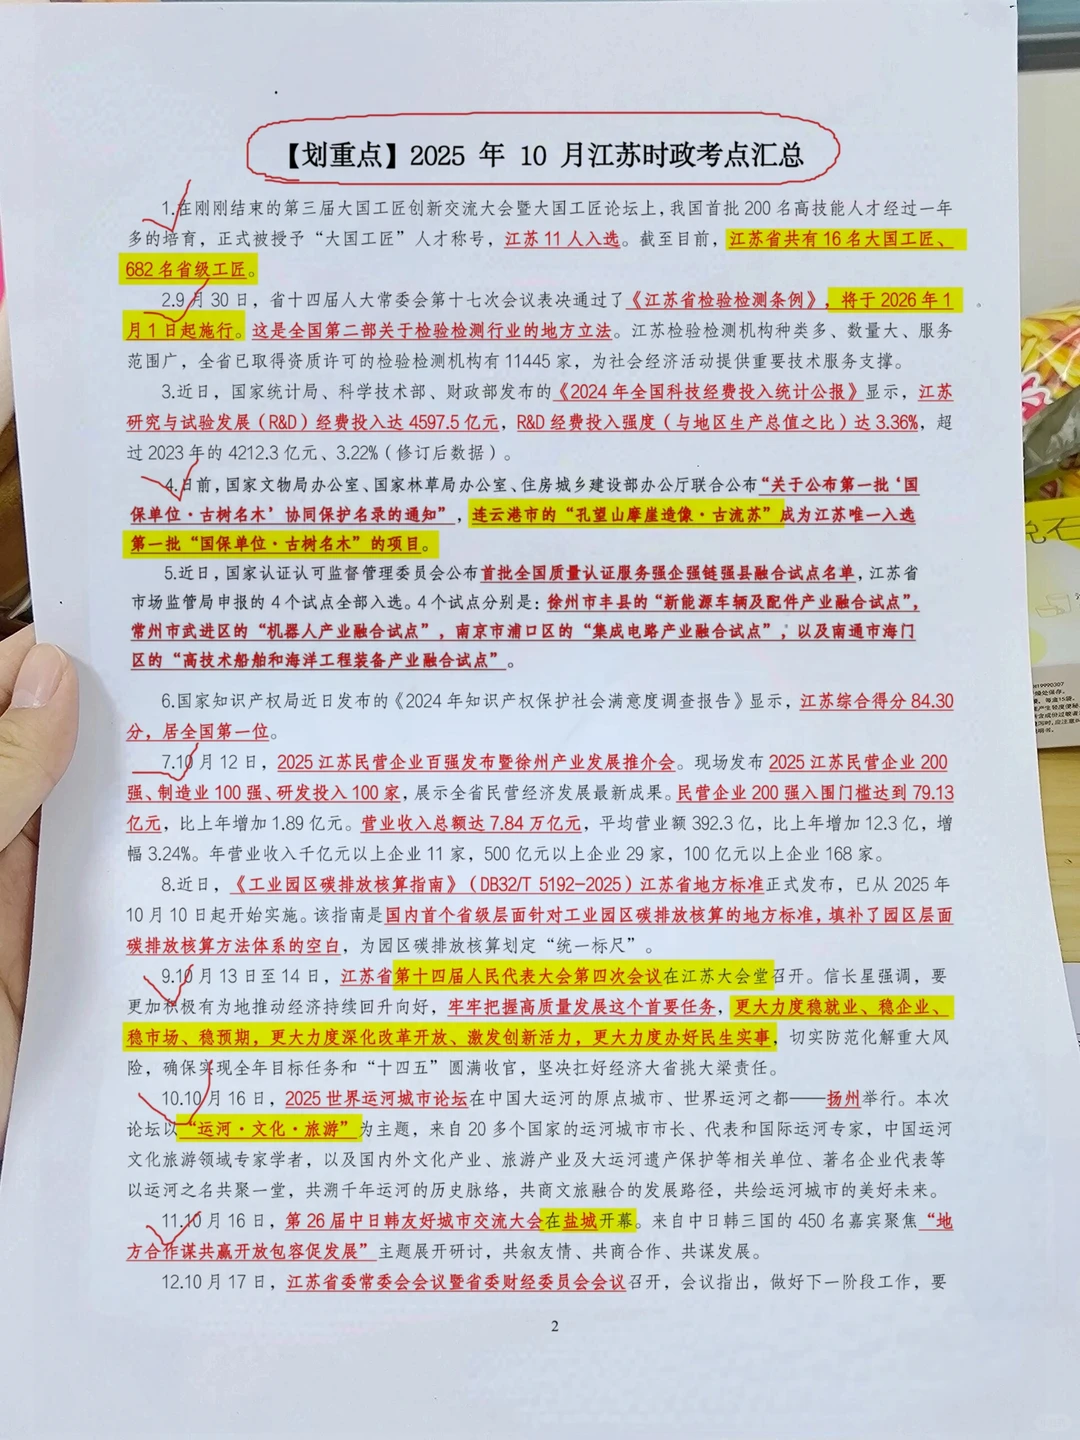 【划重点】2025 年 10 月江苏时政考点汇总
1.在刚刚结束的第三届大国工匠创新交流大会暨大国工匠论坛上，我国首批 200 名高技能人才经过一年
多的培育，正式被授予“大国工匠”人才称号，江苏 11 人入选。截至目前，江苏省共有 16 名大国工匠、
682 名省级工匠。
2.9 月 30 日，省十四届人大常委会第十七次会议表决通过了《江苏省检验检测条例》，将于 2026 年 1
月 1 日起施行。这是全国第二部关于检验检测行业的地方立法。江苏检验检测机构种类多、数量大、服务
范围广，全省已取得资质许可的检验检测机构有 11445 家，为社会经济活动提供重要技术服务支撑。
3.近日，国家统计局、科学技术部、财政部发布的《2024 年全国科技经费投入统计公报》显示，江苏
研究与试验发展（R&D）经费投入达 4597.5 亿元，R&D 经费投入强度（与地区生产总值之比）达 3.36%，超
过 2023 年的 4212.3 亿元、3.22%（修订后数据）。
4.日前，国家文物局办公室、国家林草局办公室、住房城乡建设部办公厅联合公布“关于公布第一批‘国
保单位·古树名木’协同保护名录的通知”，连云港市的“孔望山摩崖造像·古流苏”成为江苏唯一入选
第一批“国保单位·古树名木”的项目。
5.近日，国家认证认可监督管理委员会公布首批全国质量认证服务强企强链强县融合试点名单，江苏省
市场监管局申报的 4 个试点全部入选。4 个试点分别是：徐州市丰县的“新能源车辆及配件产业融合试点”，
常州市武进区的“机器人产业融合试点”，南京市浦口区的“集成电路产业融合试点”，以及南通市海门
区的“高技术船舶和海洋工程装备产业融合试点”。
6.国家知识产权局近日发布的《2024 年知识产权保护社会满意度调查报告》显示，江苏综合得分 84.30
分，居全国第一位。
7.10 月 12 日，2025 江苏民营企业百强发布暨徐州产业发展推介会。现场发布 2025 江苏民营企业 200
强、制造业 100 强、研发投入 100 家，展示全省民营经济发展最新成果。民营企业 200 强入围门槛达到 79.13
亿元，比上年增加 1.89 亿元。营业收入总额达 7.84 万亿元，平均营业额 392.3 亿，比上年增加 12.3 亿，增
幅 3.24%。年营业收入千亿元以上企业 11 家，500 亿元以上企业 29 家，100 亿元以上企业 168 家。
8.近日，《工业园区碳排放核算指南》（DB32/T 5192-2025）江苏省地方标准正式发布，已从 2025 年
10 月 10 日起开始实施。该指南是国内首个省级层面针对工业园区碳排放核算的地方标准，填补了园区层面
碳排放核算方法体系的空白，为园区碳排放核算划定“统一标尺”。
9.10 月 13 日至 14 日，江苏省第十四届人民代表大会第四次会议在江苏大会堂召开。信长星强调，要
更加积极有为地推动经济持续回升向好，牢牢把握高质量发展这个首要任务，更大力度稳就业、稳企业、
稳市场、稳预期，更大力度深化改革开放、激发创新活力，更大力度办好民生实事，切实防范化解重大风
险，确保实现全年目标任务和“十四五”圆满收官，坚决扛好经济大省挑大梁责任。
10.10 月 16 日，2025 世界运河城市论坛在中国大运河的原点城市、世界运河之都——扬州举行。本次
论坛以“运河·文化·旅游”为主题，来自 20 多个国家的运河城市市长、代表和国际运河专家，中国运河
文化旅游领域专家学者，以及国内外文化产业、旅游产业及大运河遗产保护等相关单位、著名企业代表等
以运河之名共聚一堂，共溯千年运河的历史脉络，共商文旅融合的发展路径，共绘运河城市的美好未来。
11.10 月 16 日，第 26 届中日韩友好城市交流大会在盐城开幕。来自中日韩三国的 450 名嘉宾聚焦“地
方合作谋共赢开放包容促发展”主题展开研讨，共叙友情、共商合作、共谋发展。
12.10 月 17 日，江苏省委常委会会议暨省委财经委员会会议召开，会议指出，做好下一阶段工作，要
2